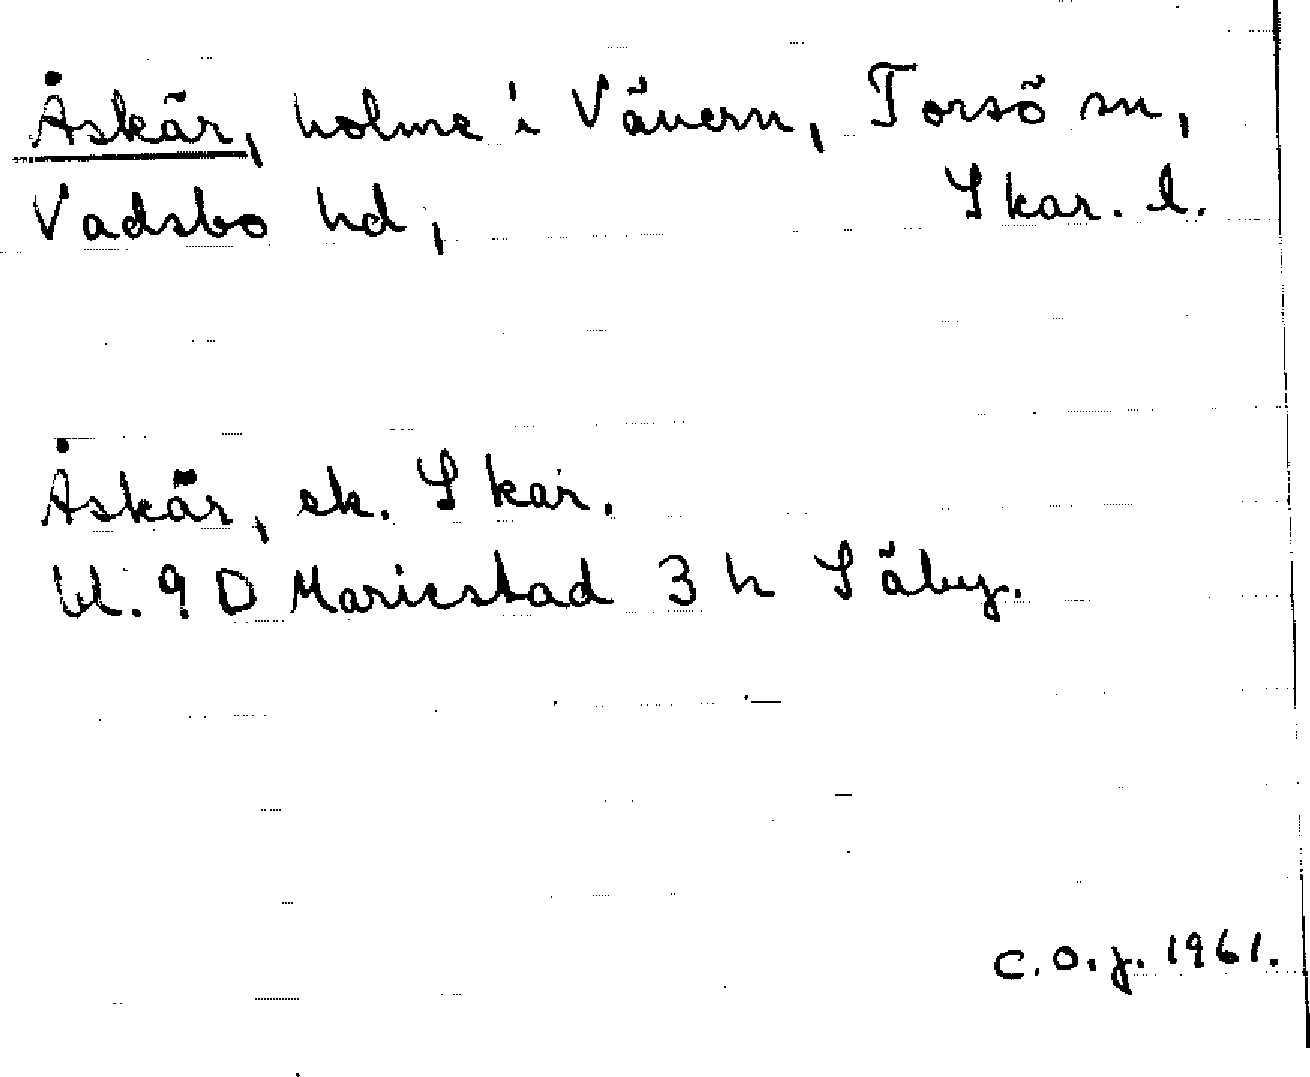 Åskär, holme i Vänern, Torsö sn,
Vadsbo hd, Skar. l.
Åskär, ek. Skar.
bl. 9 D Mariestad 3 h Säby.
C.O.J. 1961.